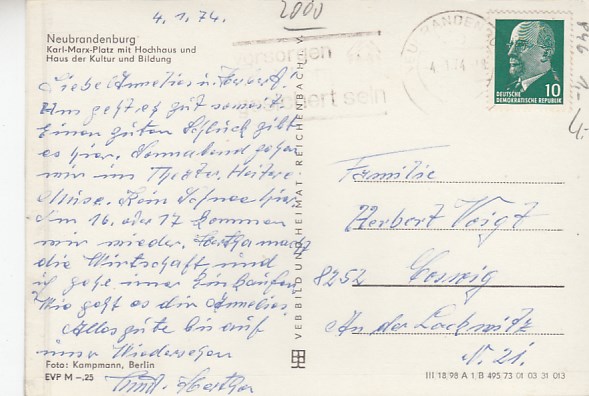 4.1.74.
2000
Neubrandenburg
Karl-Marx-Platz mit Hochhaus und
Haus der Kultur und Bildung
Liebe Annelies u. Herbert!
Uns geht es gut soweit.
Einen guten Schluck gibt
es hier. Sonnabend gehen
wir im Theater. Heitere
Muse. Kein Schnee hier.
Am 16. oder 17 kommen
wir wieder. Hertha macht
die Wirtschaft und
ich gehe einkaufen
Wie geht es dir Annelies.
Alles gute bis auf
unser Wiedersehen
Hertha
Foto: Kampmann, Berlin
EVP M –,25
VEB BILD UND HEIMAT REICHENBACH I. V.
vorsorgen
versichert sein
DEUTSCHE
DEMOKRATISCHE REPUBLIK
10
Familie
Herbert Voigt
8252 Coswig
An der Lockwitz
N. 21.
III 18 98 A 1 B 495/73 01 03 31 013